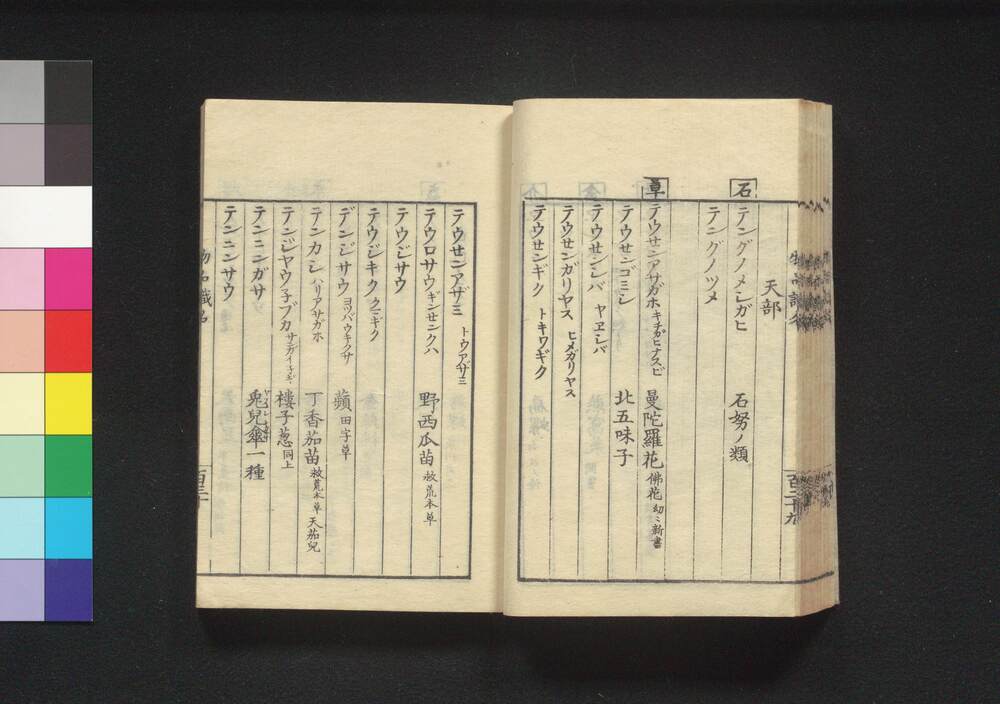 天部
石
テングノメシガヒ 石努ノ類
テングノツメ
草
テウセンアサガホ キチガヒナスビ 曼陀羅花 佛花 幼々新書
テウセンゴミシ 北五味子
テウセンシバ ヤヱシバ
テウセンガリヤス ヒメガリヤス
テウセンギク トキワギク
百二十九
テウセンアザミ トウアザミ
テウロサウ ギンセンクハ 野西瓜苗 救荒本草
テウジサウ
テウジキク クニギク
デンジサウ ヨツバウキクサ 蘋 田字草
テンカシ ハリアサガホ 丁香茄苗 救荒本草 天茄兒
テンジヤウ子ブカ 樓子葱 同上
テンニンガサ 兎兒傘一種
テンニンサウ
物品識名
百三十